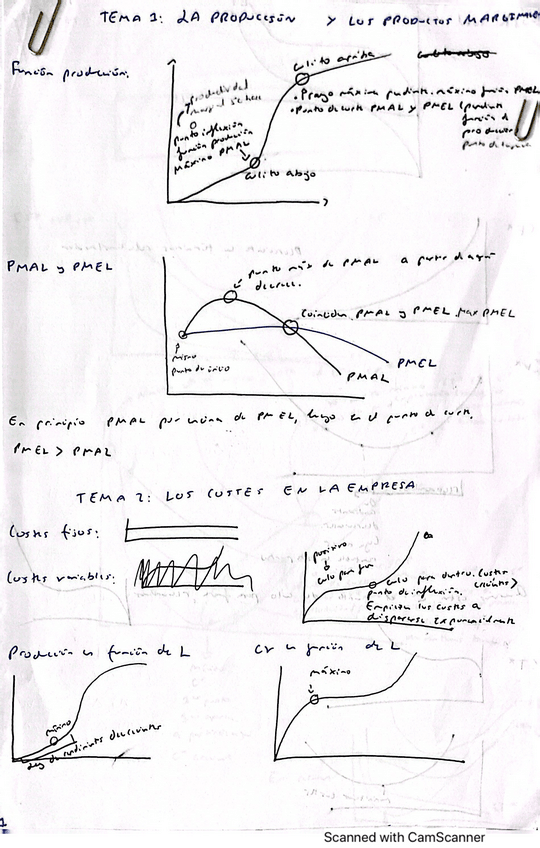 TEMA 1: LA PRODUCCIÓN Y LOS PRODUCTOS MARGINALES
Función producción.
culito arriba
culito abajo
productividad
marginal
punto inflexión
función producción
Máximo PMAL
culito abajo
máxima pendiente, máximo función PMEL
Punto de corte PMAL y PMEL (pendiente
función
producción
PMAL y PMEL
punto máx de PMAL a partir de aquí
decrece.
Coinciden PMAL y PMEL. Max PMEL
mismo
punto de inicio
PMEL
PMAL
En principio PMAL por encima de PMEL, luego en el punto de corte,
PMEL > PMAL
TEMA 2: LOS COSTES EN LA EMPRESA
Costes fijos:
Costes variables:
positivo
culo para dentro. Costes
crecientes
punto de inflexión.
Empiezan los costes a
dispararse exponencialmente
Producción en función de L
CV en función de L
mínimo
ley de rendimientos decrecientes
máximo
1
Scanned with CamScanner